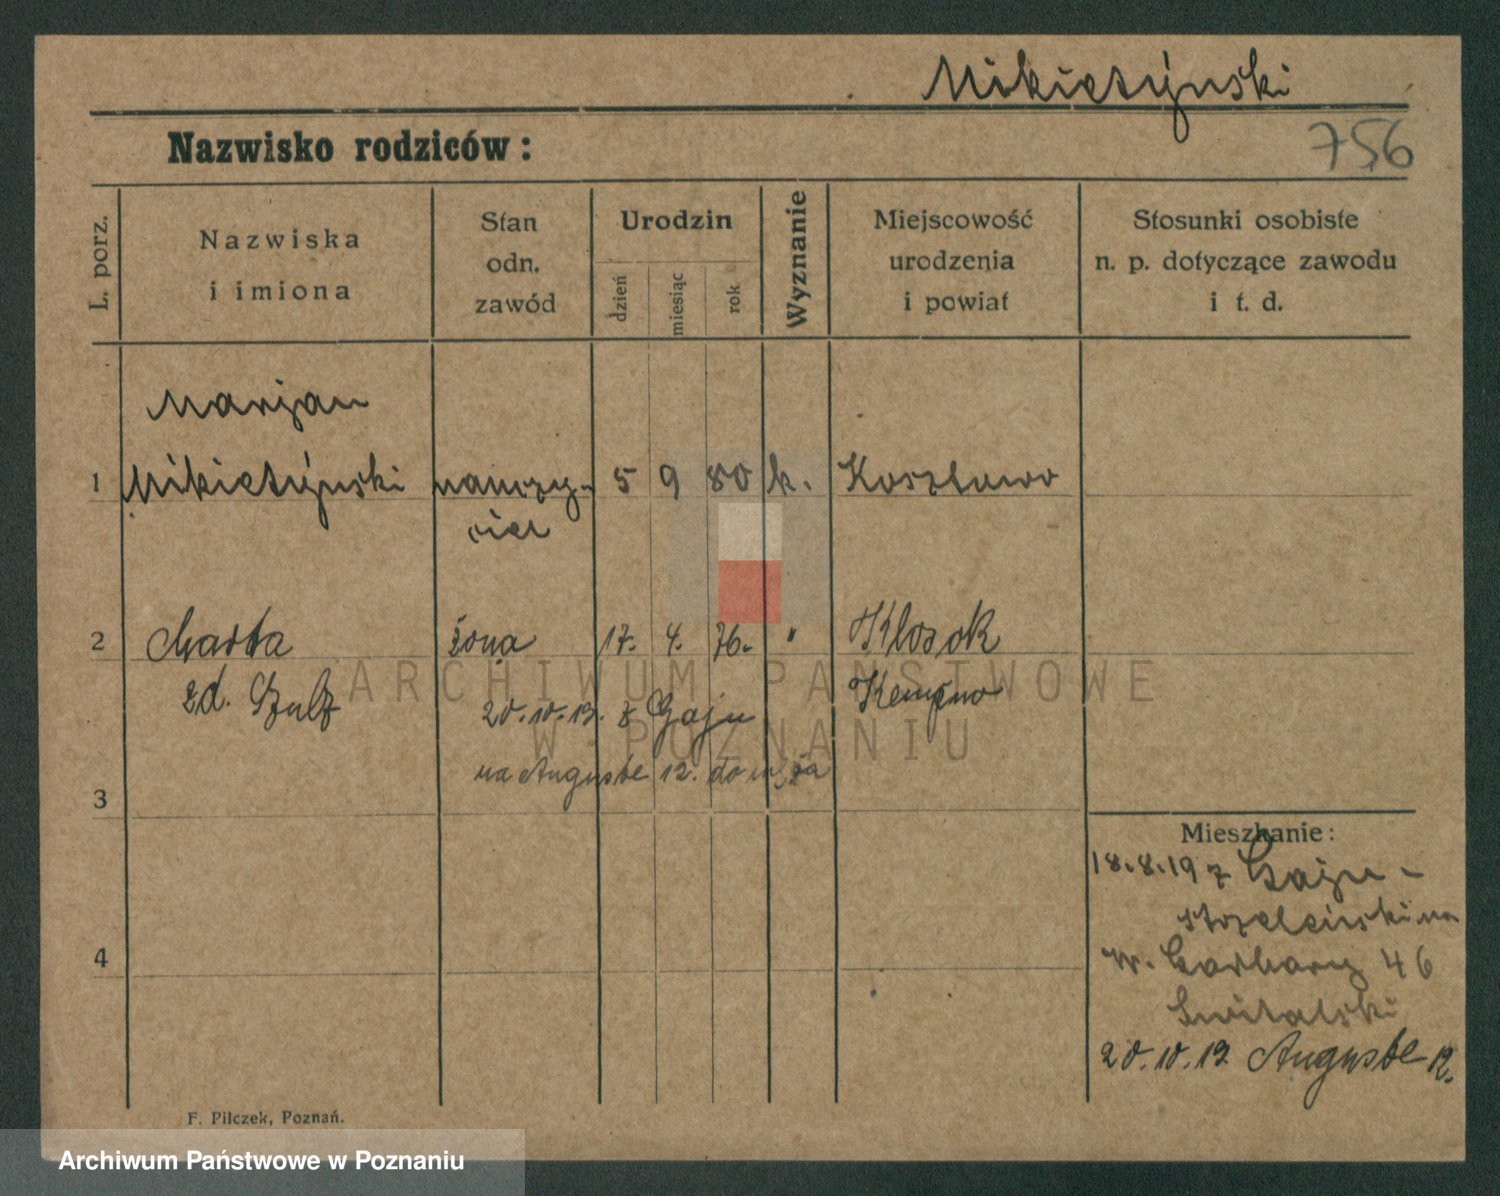 Mikietyński
Nazwisko rodziców:
756
L. porz.
Nazwiska
i imiona
Stan
odn.
zawód
Urodzin
dzień
miesiąc
rok
Wyznanie
Miejscowość
urodzenia
i powiat
Stosunki osobiste
n. p. dotyczące zawodu
i t. d.
Marjan
1 Mikietyński nauczy- 5 9 80 k. Kosztowo
ciel
2 Marta żona 17. 4. 76. " Klosok
zd. Szulz Kempno
20.10.19. z Gaju
na Auguste 12. do męża
3
Mieszkanie:
18.8.19 z Gaju -
strzeleński na
4 w. Garbary 46
Switalski
20.10.19 Auguste 12.
F. Pilczek, Poznań.
ARCHIWUM PAŃSTWOWE
W POZNANIU
Archiwum Państwowe w Poznaniu